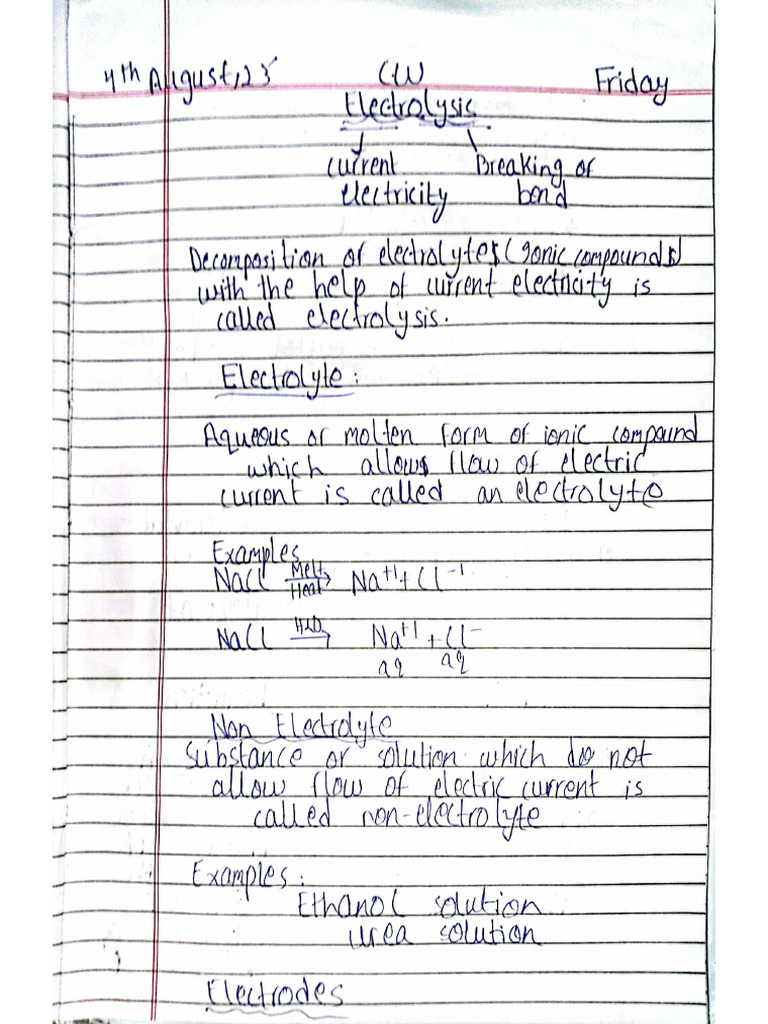 4th August, 23 CW Friday
Electrolysis
current Breaking of
electricity bond
Decomposition of electrolytes (Ionic compounds)
with the help of current electricity is
called electrolysis.
Electrolyte :
Aqueous or molten form of ionic compound
which allows flow of electric
current is called an electrolyte
Examples
NaCl Melt Heat → Na⁺¹ + Cl⁻¹
NaCl H2O → Na⁺¹ + Cl⁻
aq aq
Non Electrolyte
Substance or solution which do not
allow flow of electric current is
called non-electrolyte
Examples :
Ethanol solution
urea solution
Electrodes